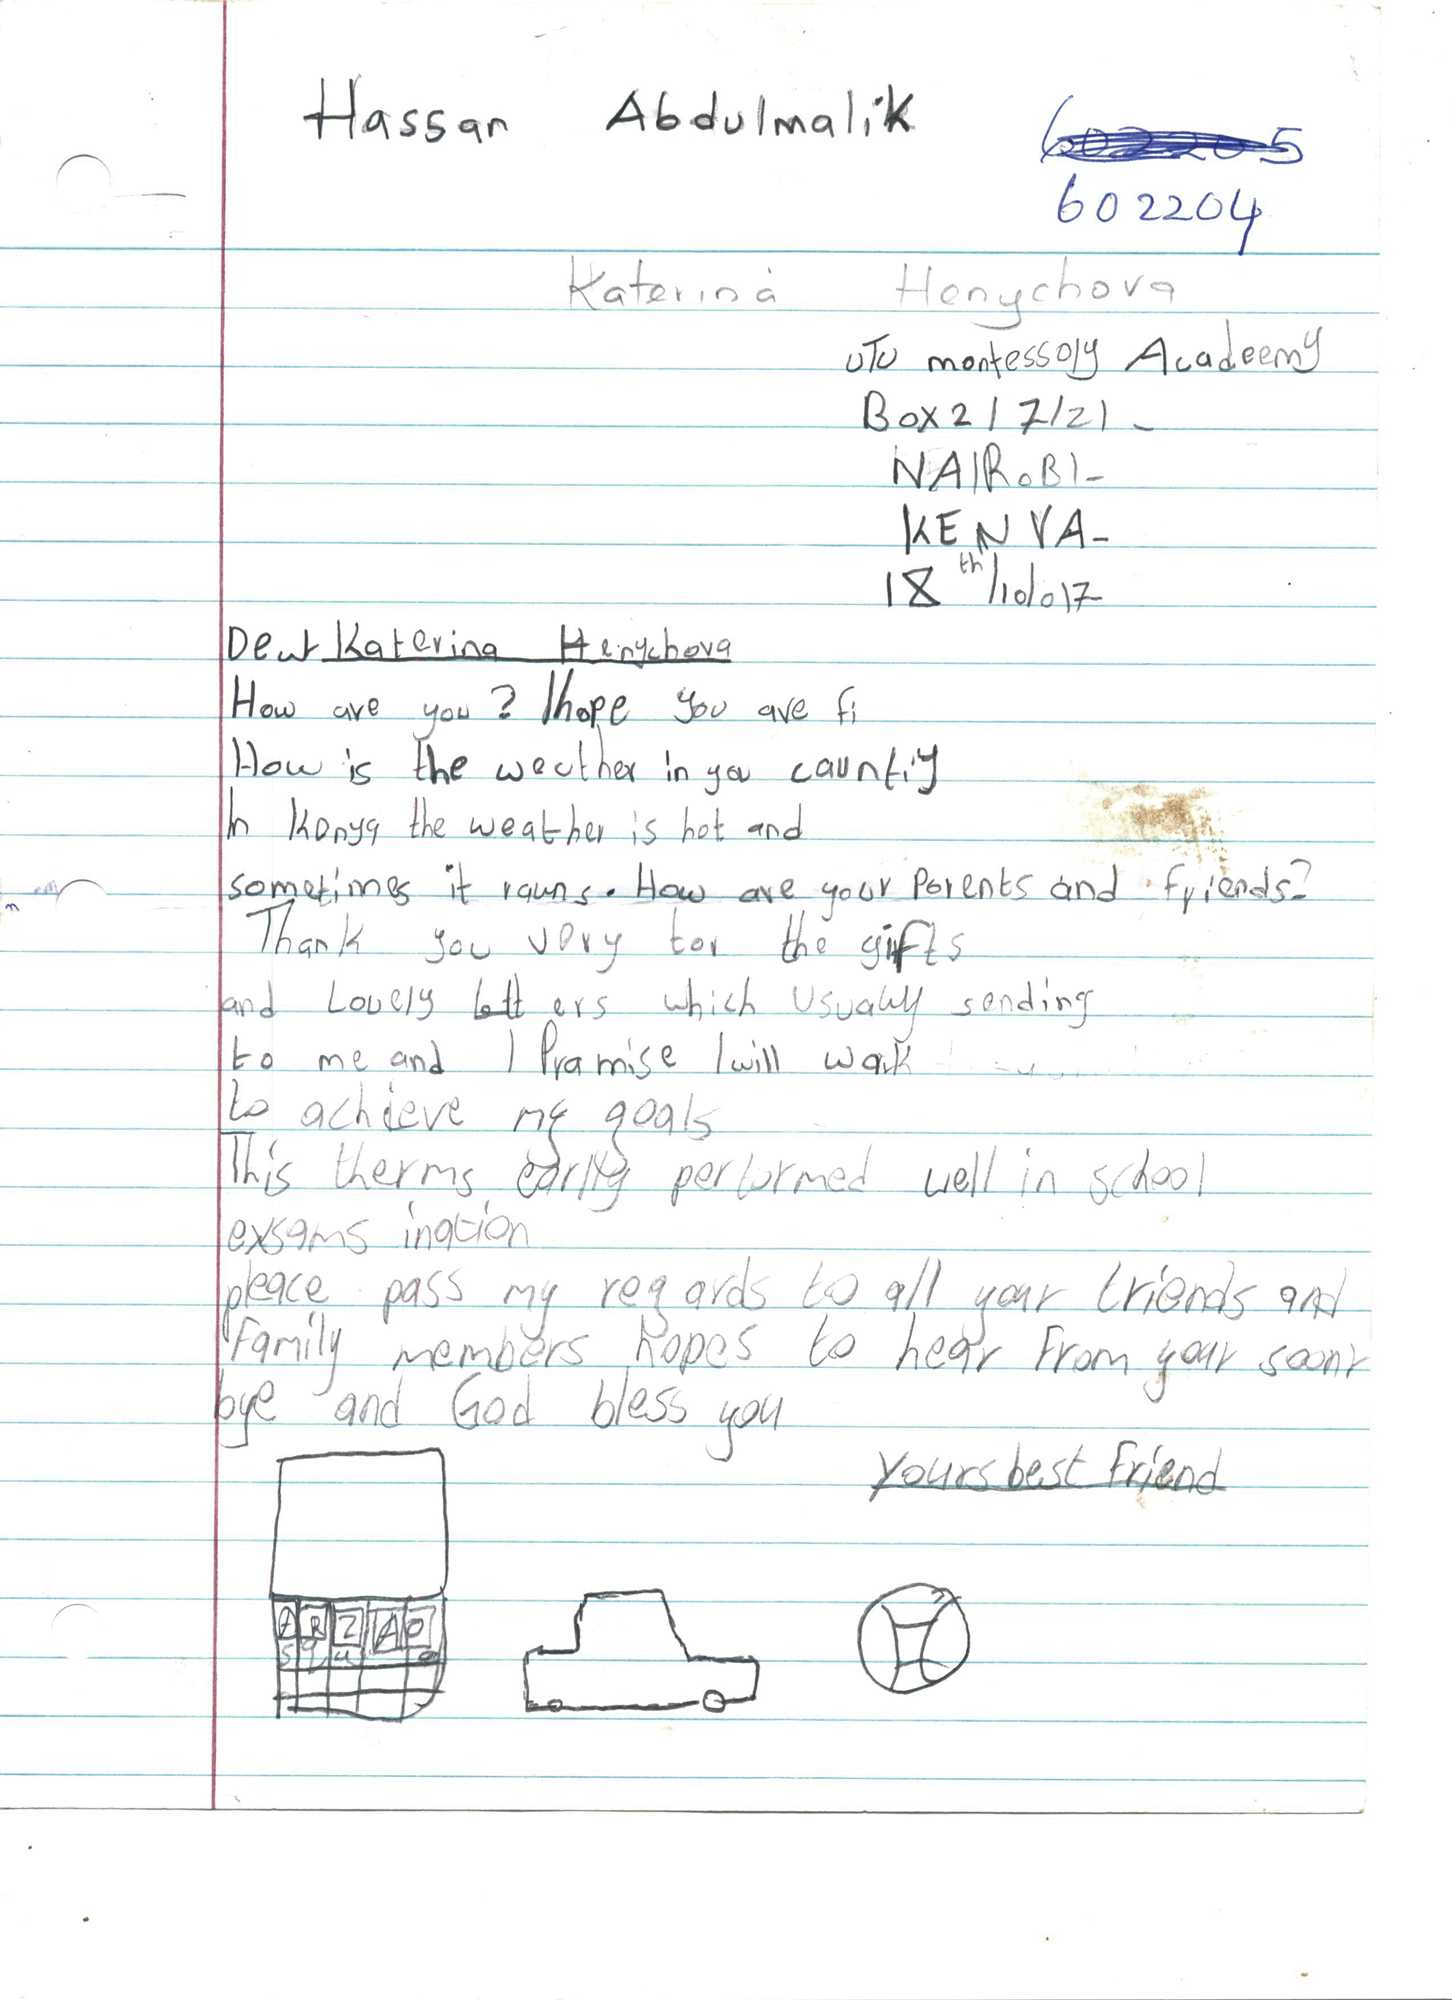 Hassan Abdulmalik
602204
Katerina Henychova
UTU montessoly Acadeemy
Box 217121-
NAIROBI-
KENYA-
18th/10/017
Dear Katerina Henychova
How are you? I hope you are fi
How is the weather in you cauntiy
In Kenya the weather is hot and
sometimes it rauns. How are your Parents and friends?
Thank you very for the gifts
and Lovely letters which usually sending
to me and I Pramise I will work
to achieve my goals
This therms performed well in school
exsams ination
pleace pass my regards to all your friends and
Family members hopes to hear From your soonr
bye and God bless you
Yours best Friend